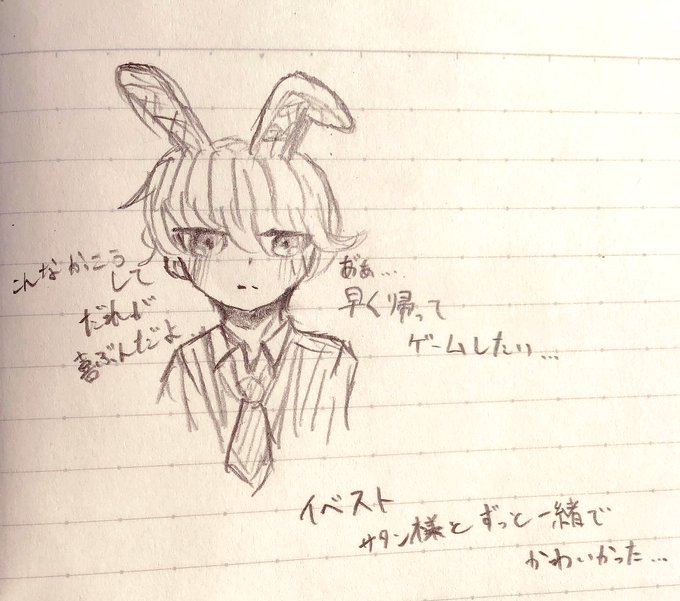 こんなかっこう
して
だれが
喜ぶんだよ...
あぁ...
早く帰って
ゲームしたい...
イベスト
サタン様とずっと一緒で
かわいかった...